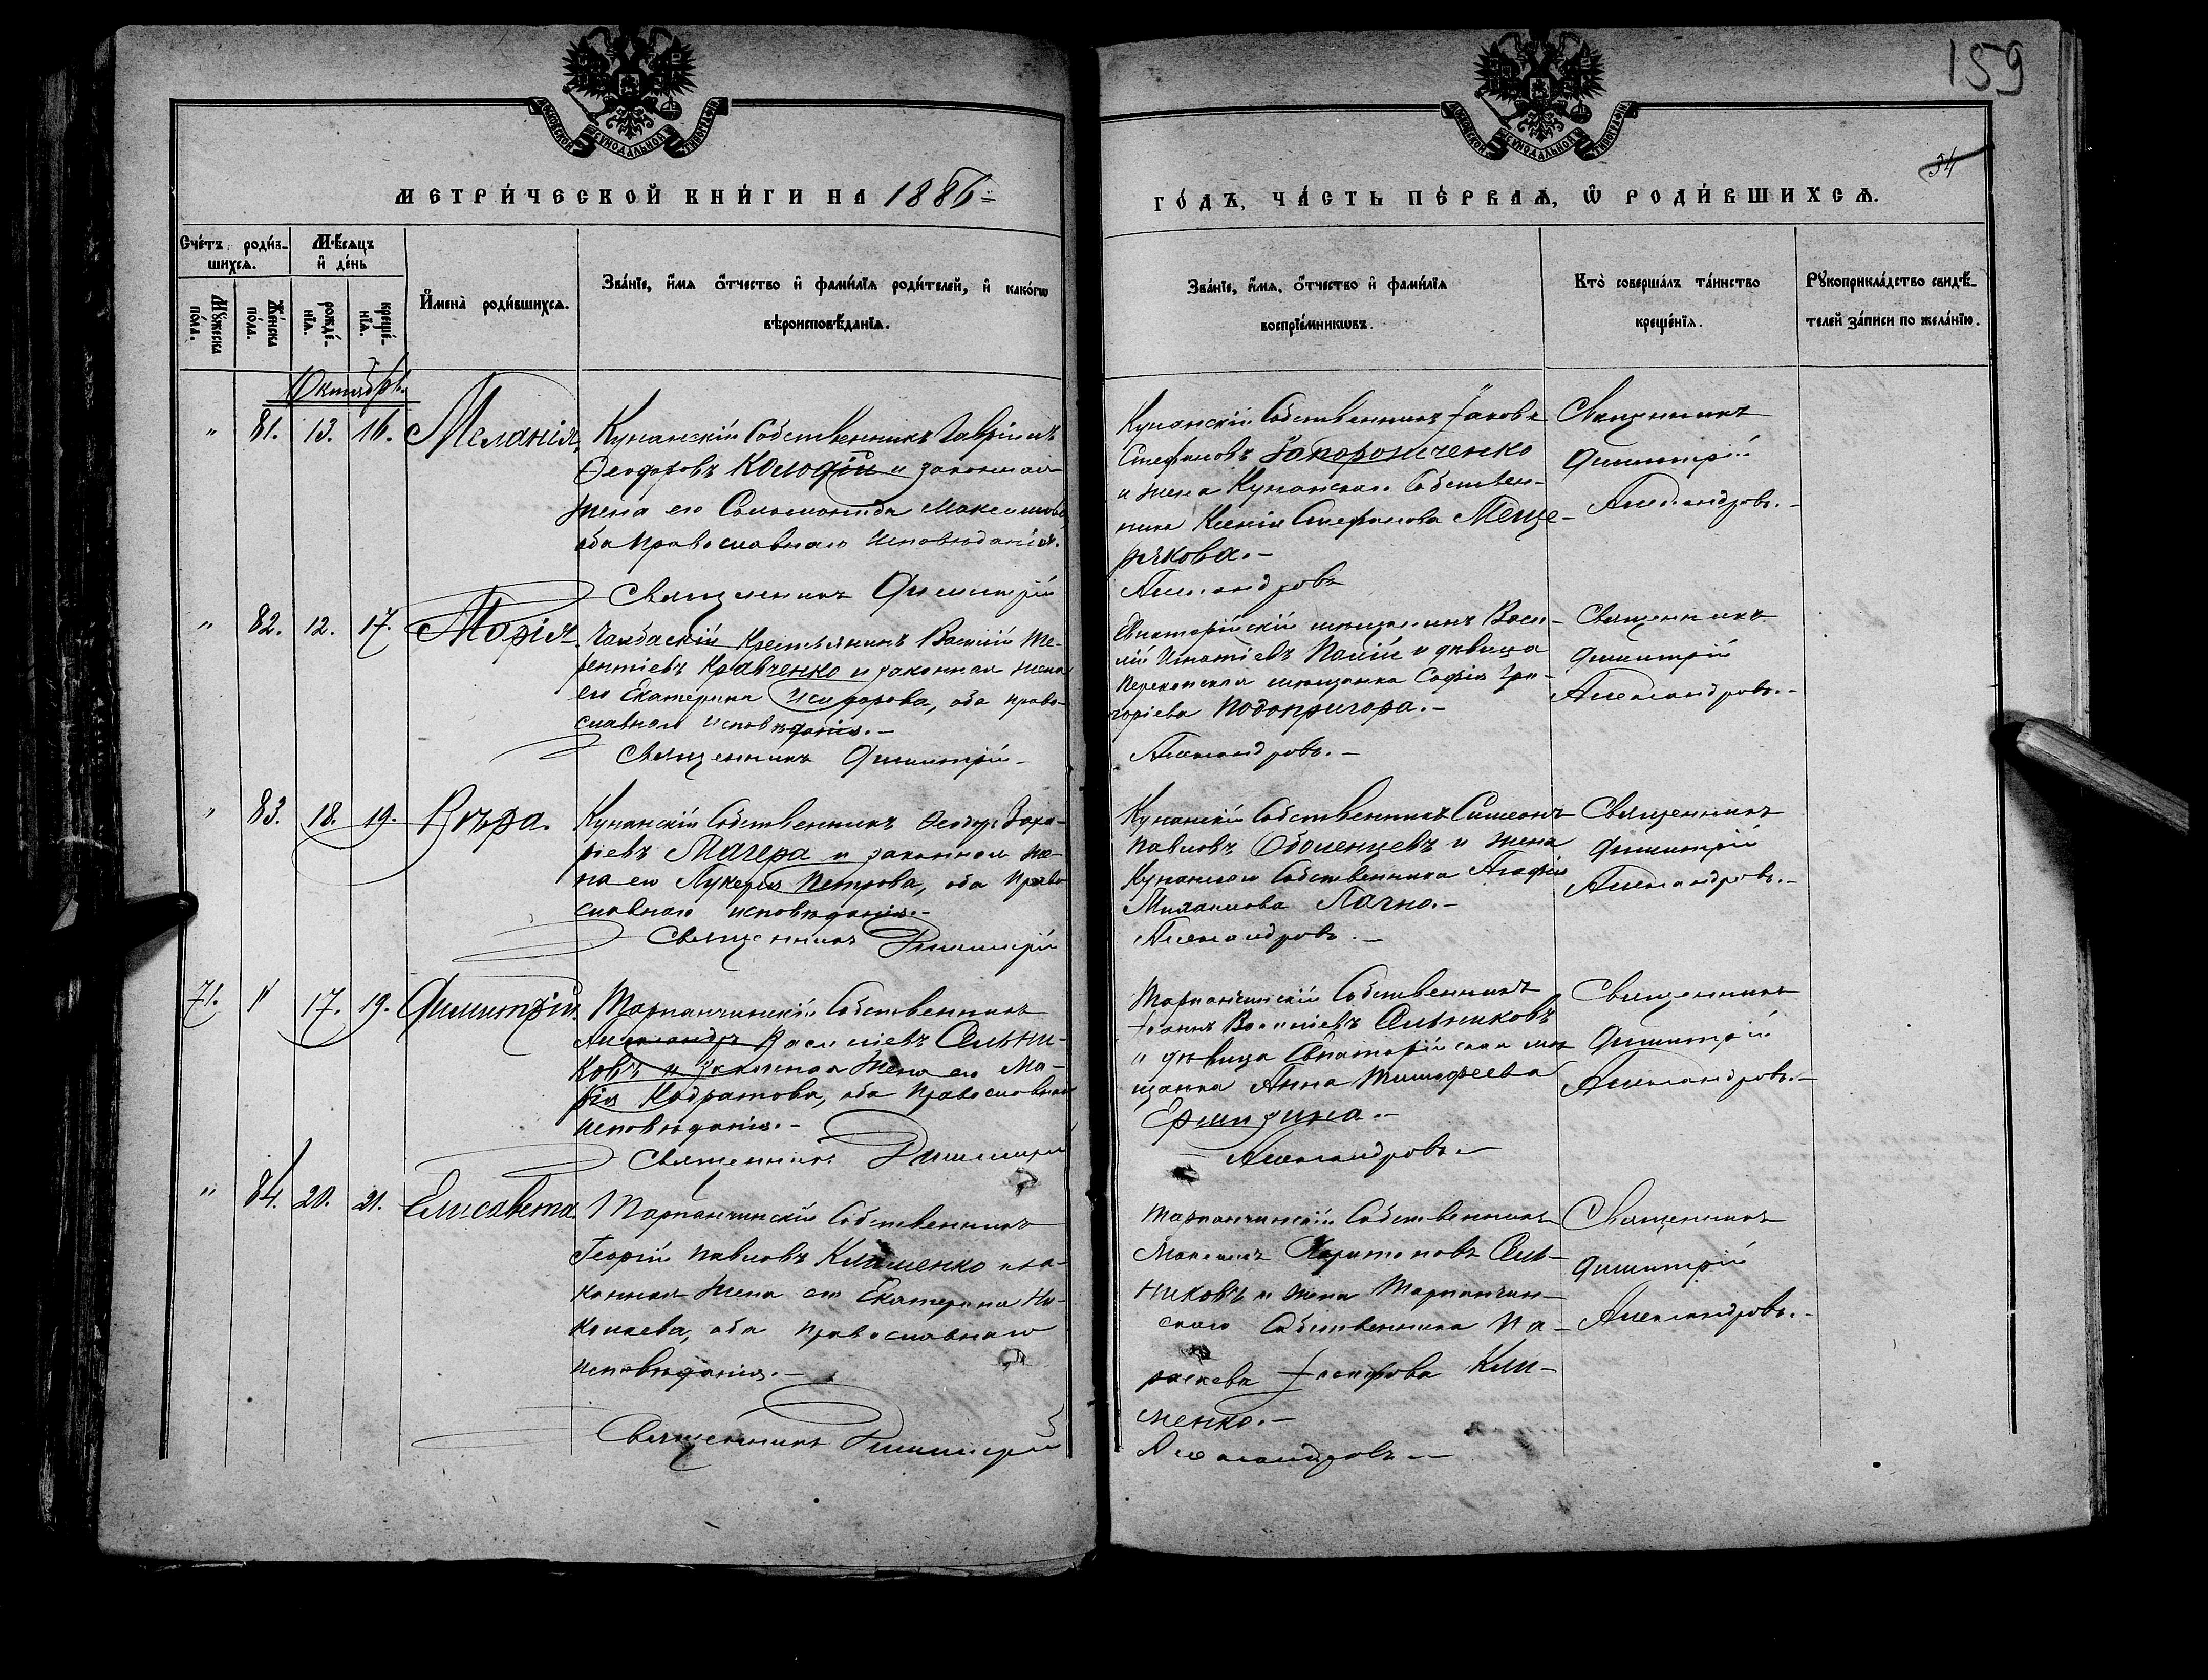 159
34
МОСКОВСКОЙ СУНОДАЛЬНОЙ ТИПОГРАФІИ
МОСКОВСКОЙ СУНОДАЛЬНОЙ ТИПОГРАФІИ
МЕТРИ́ЧЕСКОЙ КНИ́ГИ НА 1886
ГО́ДЪ, ЧА́СТЬ ПЕ́РВАѦ, Ѡ РОДИ́ВШИХСѦ.
Сче́тъ роди́в-
шихсѧ.
Мѣ́сѧцъ
и҆ де́нь
Мꙋ́жеска
по́ла.
Же́нска
по́ла.
рожде́-
нїѧ.
креще́-
нїѧ.
И҆мена̀ роди́вшихсѧ.
Зва́нїе, и҆́мѧ ѻ҆́тчество и҆ фами́лїѧ роди́телей, и҆ како́гѡ
вѣроисповѣ́данїѧ.
Зва́нїе, и҆́мѧ, ѻ҆́тчество и҆ фами́лїѧ
воспрїе́мникѡвъ.
Кто̀ соверша́лъ та́инство
креще́нїѧ.
Рꙋкоприкла́дство свидѣ́-
телей за́писи по жела́нїю.
Октябрь
" 81. 13. 16. Меланія,
Кунанскій Собственникъ Гавріилъ
Ѳеодоровъ и законная
жена его Соломонида Максимова
оба православнаго исповѣданія.
Священникъ Димитрій
Кунанскій Собственникъ Іаковъ
Стефановъ Запорожченко
и жена Кунанскаго Собствен-
ника Ксенія Стефанова Меще-
рякова.-
Александровъ
Священникъ
Димитрій
Александровъ.-
" 82. 12. 17. Марія
Чалбаскій Крестьянинъ Василій Те-
рентіевъ Кравченко и законная жена
его Екатерина Исидорова, оба право-
славнаго исповѣданія.-
Священникъ Димитрій
Евпаторійскій мѣщанинъ Васи-
лій Игнатіевъ Палій и дѣвица
Перекопская мѣщанка Софія Гри-
горіева Подопригора.-
Александровъ.-
Священникъ
Димитрій
Александровъ.-
" 83. 18. 19. Вѣра.
Кунанскій Собственникъ Ѳеодоръ Заха-
ріевъ Магера и законная же-
на его Лукерія Петрова, оба право-
славнаго исповѣданія.-
Священникъ Димитрій
Кунанскій Собственникъ Симеонъ
Павловъ Оболенцевъ и жена
Кунанскаго Собственника Агафія
Михаилова Лагно.-
Александровъ.-
Священникъ
Димитрій
Александровъ.-
71. " 17. 19. Димитрій.
Тарханчинскій Собственникъ
Александръ Василіевъ Сальни-
ковъ и законная жена его Ма-
рія Кодратова, оба православнаго
исповѣданія.-
Священникъ Димитрій
Тарханчинскій Собственникъ
Іоаннъ Василіевъ Сальниковъ
и дѣвица Евпаторійская мѣ-
щанка Анна Тимофеева
Александровъ.-
Священникъ
Димитрій
Александровъ.-
" 84. 20. 21. Елисавета.
Тарханчинскій Собственникъ
Георгій Павловъ Клименко и за-
конная жена его Екатерина Ни-
колаева, оба православнаго
исповѣданія.-
Священникъ Димитрій
Тарханчинскій Собственникъ
Максимъ Харитоновъ Саль-
никовъ и жена Тарханчин-
скаго Собственника Па-
раскева Іосифова Кли-
менко.-
Александровъ.-
Священникъ
Димитрій
Александровъ.-